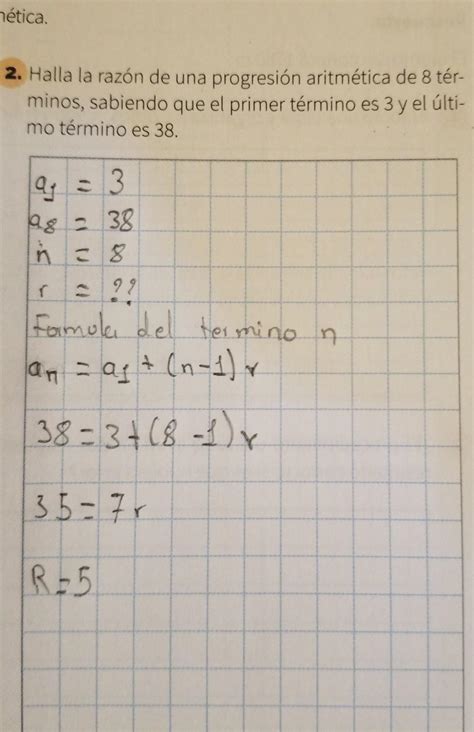 nética.
2. Halla la razón de una progresión aritmética de 8 tér-
minos, sabiendo que el primer término es 3 y el últi-
mo término es 38.
a1 = 3
a8 = 38
n = 8
r = ??
Formula del termino n
an = a1 + (n-1) r
38 = 3 + (8 - 1) r
35 = 7r
R = 5